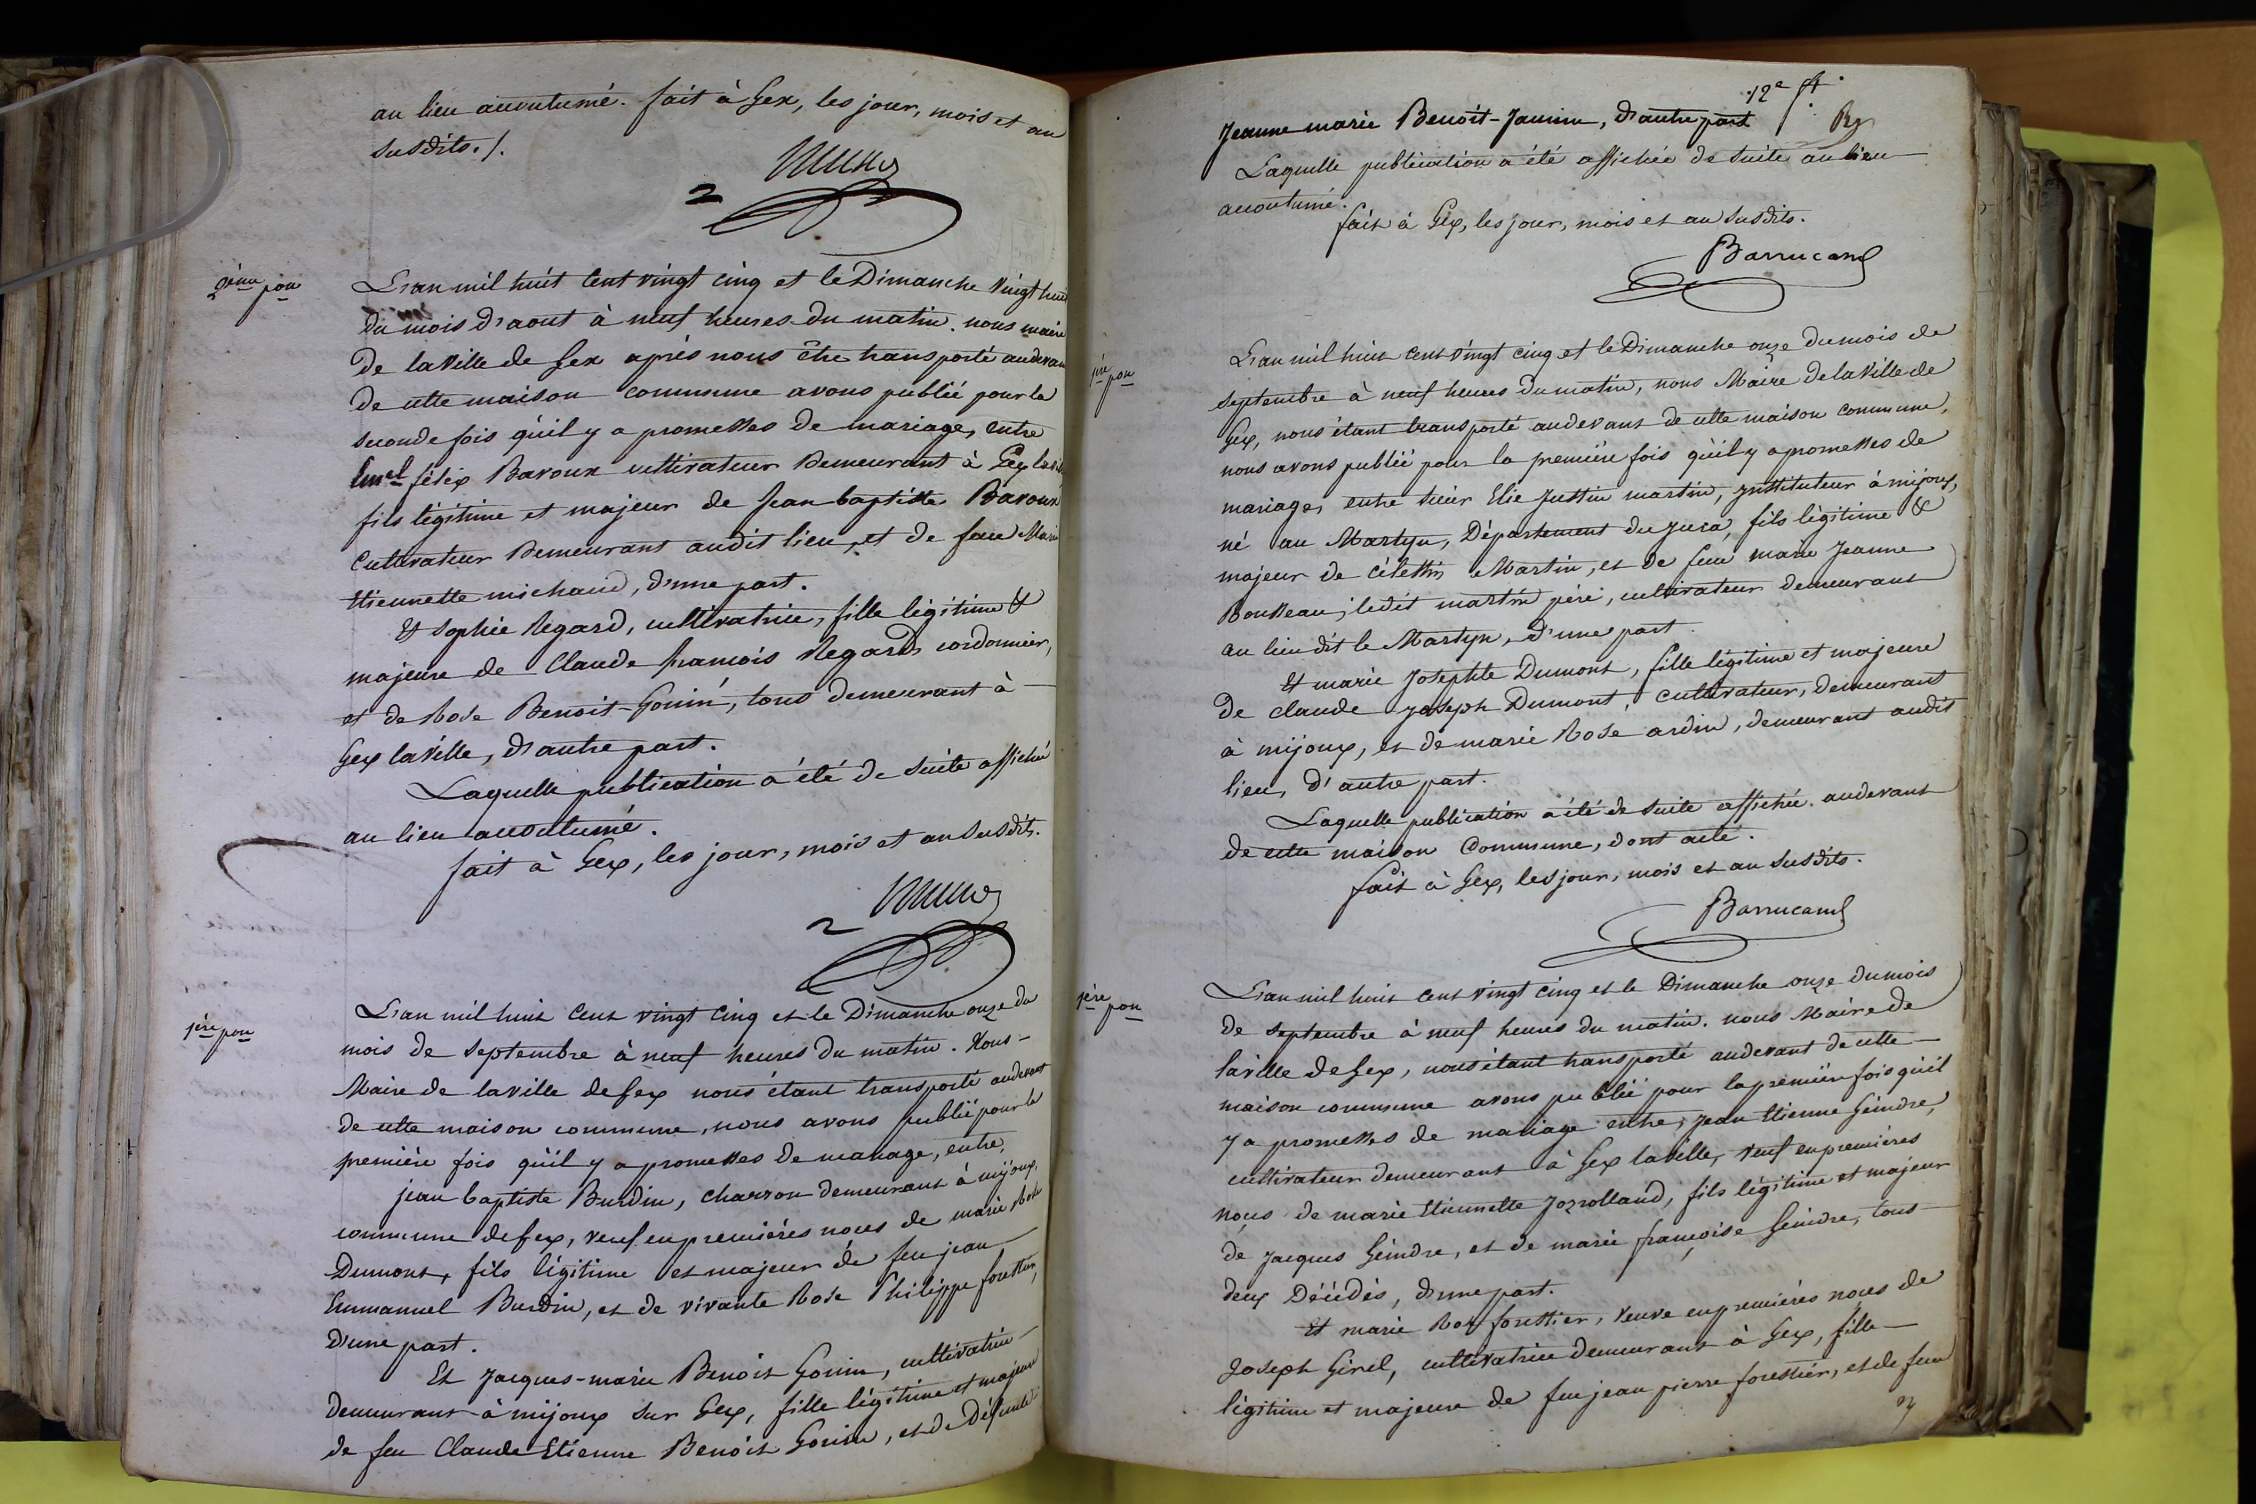 au lieu accoutumé. fait à Gex, les jour, mois et an
susdits./.
2ème pon
L'an mil huit cent vingt cinq et le Dimanche vingt huit
du mois d'aout à neuf heures du matin. nous maire
de la ville de Gex après nous être transporté audevant
de cette maison commune avons publié pour la
seconde fois qu'il y a promesses de mariage, entre
Emel félix Baroux cultivateur demeurant à Gex la ville
fils légitime et majeur de Jean baptiste Baroux
cultivateur demeurant audit lieu, et de feue Marie
Etiennette michaud, d'une part.
Et Sophie Regard, cultivatrice, fille légitime &
majeure de Claude françois Regard cordonnier,
et de Rose Benoit-Gonin, tous demeurant à
Gex la ville, d'autre part.
Laquelle publication a été de suite affichée
au lieu accoutumé.
fait à Gex, les jour, mois et an susdits.
1ère pon
L'an mil huit cent vingt cinq et le Dimanche onze du
mois de septembre à neuf heures du matin. Nous
Maire de la ville de Gex nous étant transporté audevant
de cette maison commune, nous avons publié pour la
première fois qu'il y a promesses de mariage, entre,
jean baptiste Burdin, charron demeurant à mijoux,
commune de Gex, veuf en premières noces de marie Rose
Dumont, fils légitime et majeur de feu jean
Emmanuel Burdin, et de vivante Rose Philippe forestier,
d'une part.
Et Jacques-marie Benoit Gonin, cultivatrice
demeurant à mijoux sur Gex, fille légitime et majeure
de feu Claude Etienne Benoit Gonin, et de défunte
12e ft.
Jeanne marie Benoit-Jannin, d'autre part
Laquelle publication a été affichée de suite au lieu
accoutumé.
fait à Gex, les jour, mois et an susdits.
Barrucand
1ère pon
L'an mil huit cent vingt cinq et le Dimanche onze du mois de
septembre à neuf heures du matin, nous Maire de la ville de
Gex, nous étant transporté audevant de cette maison commune,
nous avons publié pour la première fois qu'il y a promesses de
mariage, entre sieur Elie Justin martin, Instituteur à mijoux,
né au Martyn, Département du Jura, fils légitime &
majeur de Célestin Martin, et de feue marie Jeanne
Rousseau; ledit martin père, cultivateur demeurant
au lieu dit le Martyn, d'une part.
Et marie Josephte Dumont, fille légitime et majeure
de claude Joseph Dumont, cultivateur, demeurant
à mijoux, et de marie Rose ardin, demeurant audit
lieu, d'autre part.
Laquelle publication a été de suite affichée audevant
de cette maison Commune, dont acte.
fait à Gex, les jour, mois et an susdits.
Barrucand
1ère pon
L'an mil huit cent vingt cinq et le Dimanche onze du mois
de septembre à neuf heures du matin. nous Maire de
la ville de Gex, nous étant transporté audevant de cette
maison commune avons publié pour la première fois qu'il
y a promesses de mariage entre, jean Etienne Geindre,
cultivateur demeurant à Gex la ville, veuf en premières
noçes de marie Etiennette Jozrolland, fils légitime et majeur
de Jacques Geindre, et de marie françoise Geindre, tous
deux Décédés, d'une part.
Et marie Rose forestier, veuve en premières noçes de
Joseph Girel, cultivatrice demeurant à Gex, fille
légitime et majeure de feu jean pierre forestier, et de feue